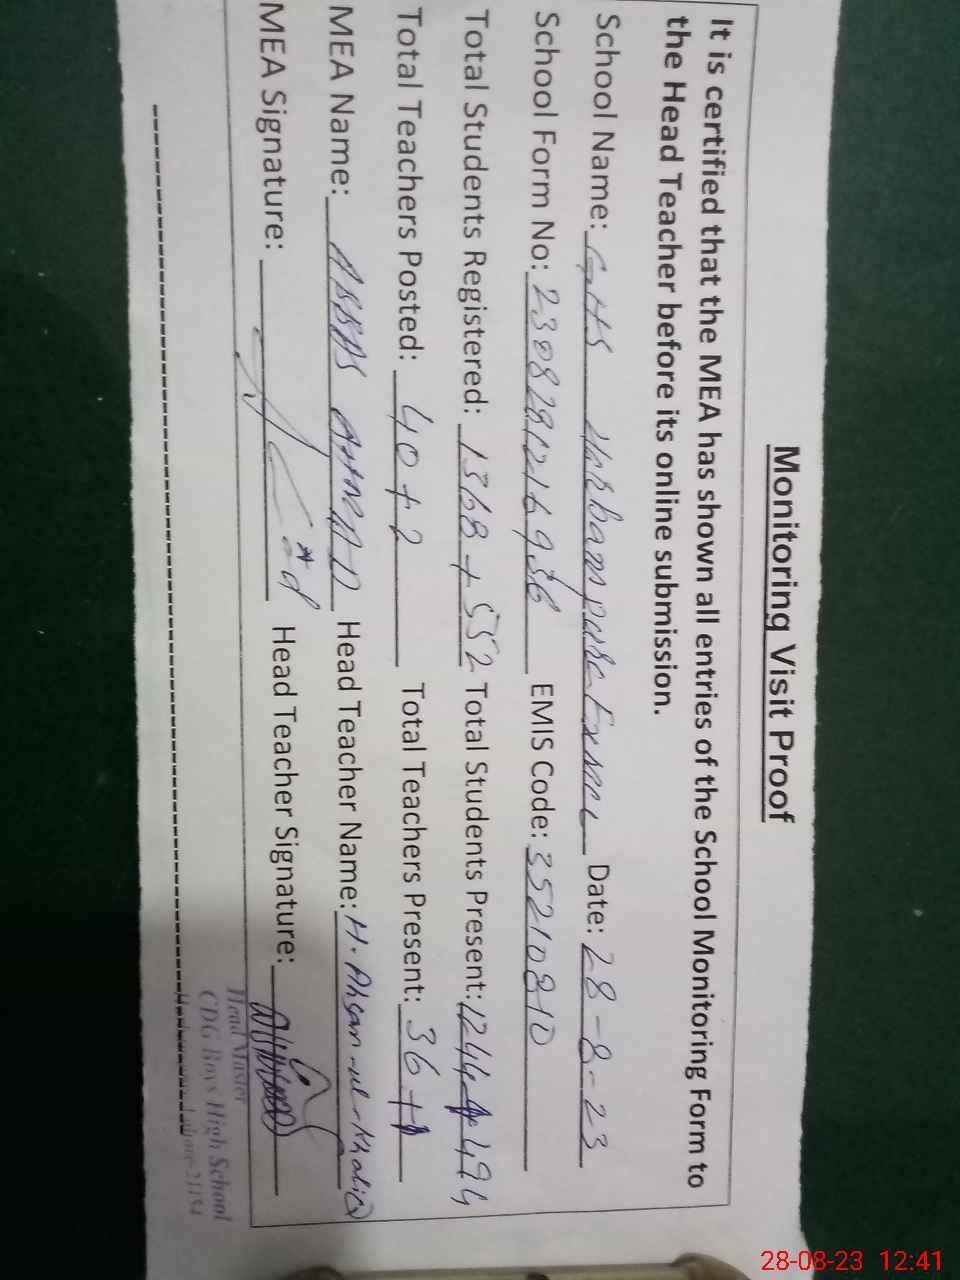 Monitoring Visit Proof
It is certified that the MEA has shown all entries of the School Monitoring Form to
the Head Teacher before its online submission.
School Name: GHS Harbanspura Date: 28-8-23
School Form No: EMIS Code: 35210810
Total Students Registered: 1368 + 552 Total Students Present: 1244 + 494
Total Teachers Posted: 40 + 2 Total Teachers Present: 36 + 1
MEA Name: ABBAS AHMAD Head Teacher Name: H. Ahsan-ul-Khaliq
MEA Signature: Head Teacher Signature:
Head Master
CDG Boys High School
28-08-23 12:41